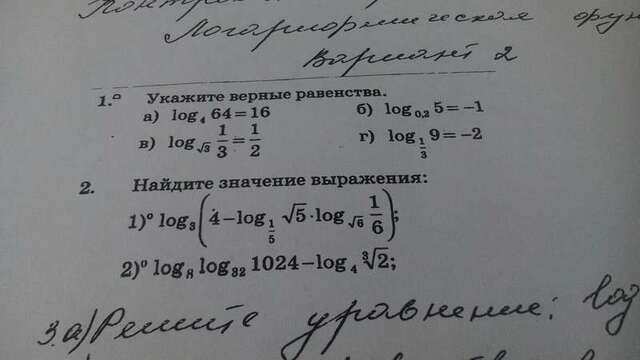 Логарифмической фун
Вариант 2
1.° Укажите верные равенства.
а) log₄ 64=16 б) log₀,₂ 5=−1
в) log_√3 1/3 = 1/2 г) log_1/3 9=−2
2. Найдите значение выражения:
1)° log₃(4−log_1/5 √5·log_√6 1/6);
2)° log₈ log₃₂ 1024−log₄ ∛2;
3.а) Решите уравнение: log